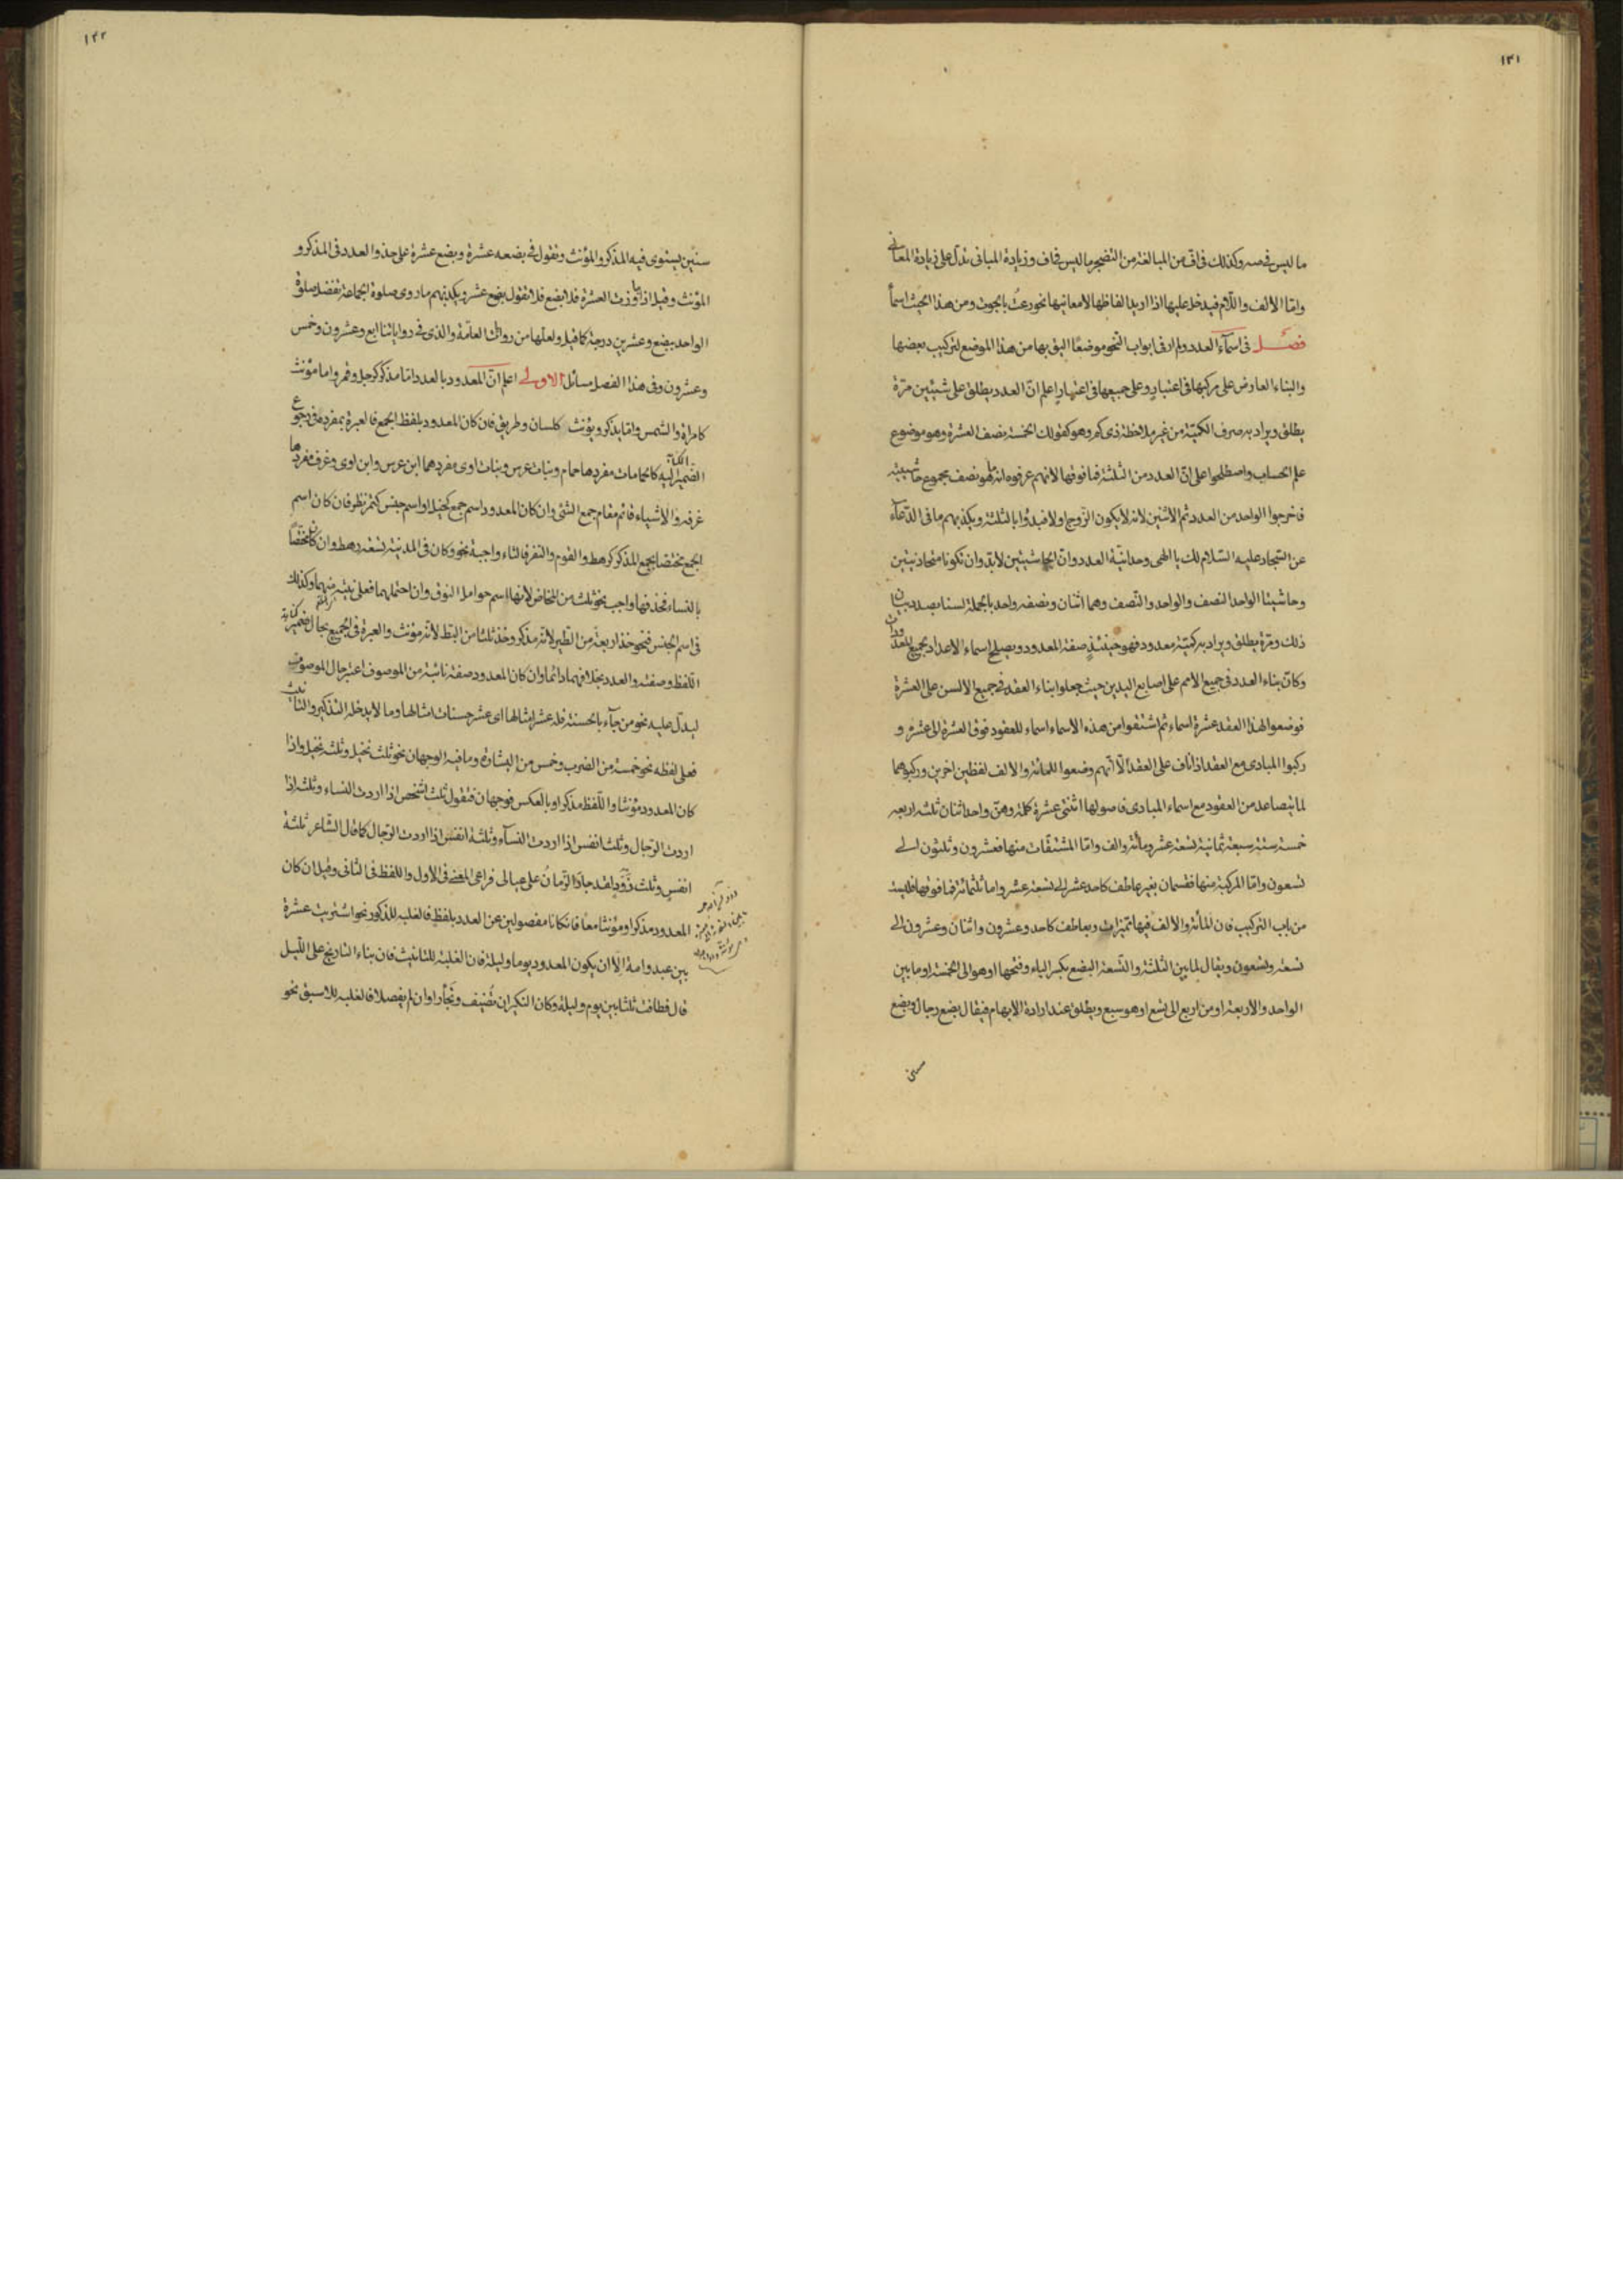 ١٢١
ما ليس في صه وكذلك في اف من المبالغة من التضجر ما ليس في اف وزيادة المباني تدل على زيادة المعاني
واما الالف واللام فيدخل عليها اذا اريد الفاظها لا معانيها نحو من هذا الحيث اسما
فصل في اسماء العدد ولم ار في ابواب النحو موضعا اليق بها من هذا الموضع لتركيب بعضها
والبناء العارض على مركبها في اعتبار وعلى جميعها في اعتبار اعلم ان العدد يطلق على شيئين مرة
يطلق ويراد به صرف الكمية من غير ملاحظة ذي كم وهو كقولك الخمسة نصف العشرة وهو موضوع
علم الحساب واصطلحوا على ان العدد من الثلثة فما فوقها لانهم عرفوه انه ما هو نصف مجموع حاشيتيه
فاخرجوا الواحد من العدد ثم الاثنين لانه لا يكون الزوج اولا فبدؤا بالثلثة ويكذبهم ما في الدعاء
عن السجاد عليه السلام لك يا الهي وحدانية العدد وان الحاشيتين لابد وان تكونا متحاذيتين
وحاشيتا الواحد النصف والواحد والنصف وهما اثنان ونصفه واحد بالجملة لسنا بصدد بيان
ذلك ومرة يطلق ويراد به كمية معدود فهو حينئذ صفة المعدود ويصلح اسماء الاعداد لجميع المعدودات
وكان بناء العدد في جميع الامم على اصابع اليدين حيث جعلوا بناء العقد في جميع الالسن على العشرة
فوضعوا لهذا العقد عشرة اسماء ثم اشتقوا من هذه الاسماء اسماء للعقود فوق العشرة الى عشرة و
ركبوا المبادى مع العقد اذا ناف على العقد الا انهم وضعوا للمائة والالف لفظين اخرين وركبوهما
لما يتصاعد من العقود مع اسماء المبادى فاصولها اثنتى عشرة كلمة وهن واحد اثنان ثلثه اربعه
خمسة ستة سبعة ثمانية تسعة عشر ومائة والف واما المشتقات منها فعشرون وثلثون الى
تسعون واما المركبة منها فقسمان بغير عاطف كاحد عشر الى تسعة عشر واما ثلثمائة فما فوقها فليست
من باب التركيب فان المائة والالف فيها تميزات وبعاطف كاحد وعشرون واثنان وعشرون الى
تسعة وتسعون ويقال لما بين الثلثة والتسعة البضع بكسر الباء وفتحها او هو الى الخمسة او ما بين
الواحد والاربعة او من اربع الى تسع او هو سبع ويطلق عند ارادة الابهام فيقال بضع رجال وبضع
سنين
١٢٢
سنين يستوى فيه المذكر والمؤنث وتقول في بضعه عشرة وبضع عشرة على حذو العدد في المذكر و
المؤنث وقيل اذا جاوزت العشرة فلا بضع فلا تقول بضع عشر ويكذبهم ما روى صلوة الجماعة تفضل صلوة
الواحد ببضع وعشرين درجة كما قيل ولعلها من روات العامة والذى في رواياتنا اربع وعشرون وخمس
وعشرون وفي هذا الفصل مسائل الاولى اعلم ان المعدود بالعدد اما مذكر كرجل وقمر واما مؤنث
كامراة والشمس واما يذكر ويؤنث كلسان وطريق فان كان المعدود بلفظ الجمع فالعبرة بمفرده في رجوع
الضمير اليه كالحمامات مفردها حمام وبنات عرس وبنات اوى مفردهما ابن عرس وابن اوى وغرف مفردها
غرفه والاشياء قائم مقام جمع الشئ وان كان المعدود اسم جمع كخيل او اسم جنس كتمر نظر فان كان اسم
الجمع مختصا بجمع المذكر كرهط والقوم والنفر فالتاء واجبة نحو وكان في المدينة تسعة رهط وان كان مختصا
بالنساء فحذفها واجب نحو ثلث من المخاض لانها اسم حوامل النوق وان احتملهما فعلى نيته منهما وكذلك
في اسم الجنس فنحو خذ اربعة من الطير لانه مذكر وخذ ثلثا من البط لانه مؤنث والعبرة في الجميع بحال ضمير
اللفظ وصفته والعدد بخلافهما دائما وان كان المعدود صفة نائبة من الموصوف اعتبر حال الموصوف
ليدل عليه نحو من جاء بالحسنة فله عشر امثالها اى عشر حسنات امثالها وما لا يدخله التذكير والتانيث
فعلى لفظه نحو خمسة من الضرب وخمس من البشارة وما فيه الوجهان نحو ثلث نخيل وثلثه نخيل واذا
كان المعدود مؤنثا واللفظ مذكرا وبالعكس فوجهان فتقول ثلث اشخص اذا اردت النساء وثلثه اذا
اردت الرجال وثلث انفس اذا اردت النساء وثلثة انفس اذا اردت الرجال كما قال الشاعر ثلثة
انفس وثلث ذود لقد جار الزمان على عيالى فراعى المعنى في الاول واللفظ في الثانى وقيل ان كان
المعدود مذكرا ومؤنثا معا فان كانا مفصولين عن العدد بلفظ فالغلبه للذكور نحو اشتريت عشرة
بين عبد وامة الا ان يكون المعدود يوما وليلة فان الغلبة للتانيث فان بناء التاريخ على الليل
قال فطافت ثلثا بين يوم وليلة وكان النكير ان تضيف وتجأرا وان لم يفصلا فالغلبه للاسبق نحو